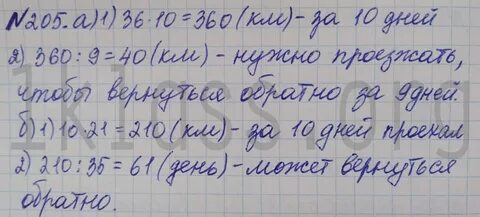 №205. а) 1) 36·10=360 (км) – за 10 дней
2) 360:9=40 (км) – нужно проезжать,
чтобы вернуться обратно за 9 дней.
б) 1) 10·21=210 (км) – за 10 дней проехал
2) 210:35=61 (день) – может вернуться
обратно.
1klass.org